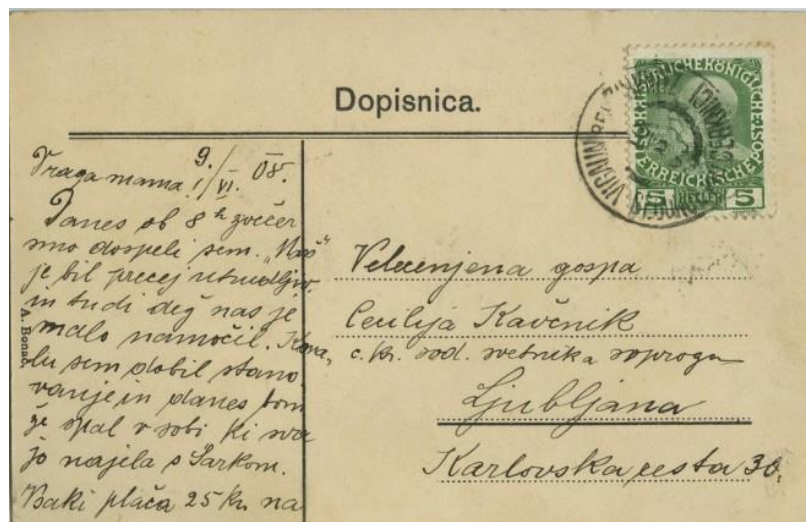 Dopisnica.
Draga mama! 9./VI. 08.
Danes ob 8h zvečer
smo dospeli sem. "Marš"
je bil precej utrudljiv
in tudi dež nas je
malo namočil.
sem dobil stano
vanje in danes bom
že spal v sobi ki sva
jo najela s Sarkom.
Vsaki plača 25 Kr. na
A. Bonač
Velecenjena gospa
Cecilija Kavčnik
c. kr. sod. svetnika soproga
Ljubljana
Karlovska cesta 30.
5 HELLER 5